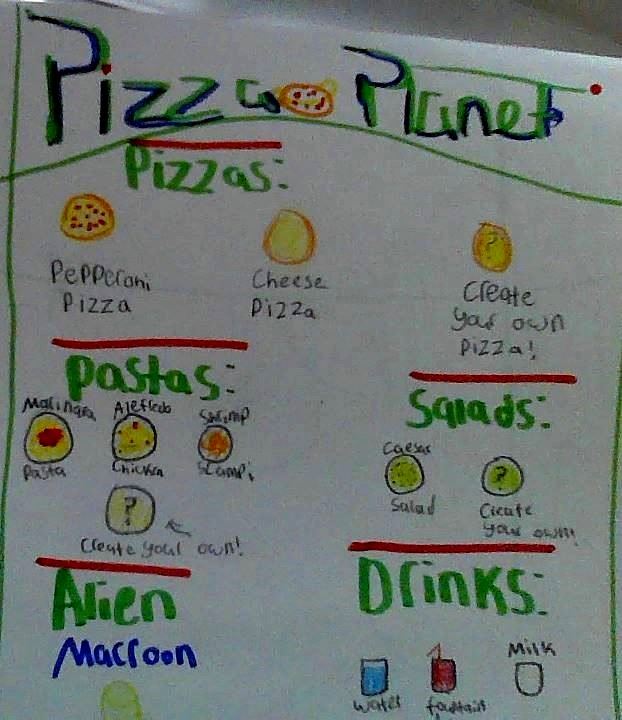 Pizza Planet
Pizzas:
Pepperoni
Pizza
Cheese
Pizza
Create
your own
Pizza!
Pastas:
Marinara
Pasta
Alefredo
Chicken
Shrimp
Scampi
?
Create your own!
Salads:
Caesar
Salad
?
Create
your own!
Alien
Macroon
Drinks:
Water
fountain
Milk